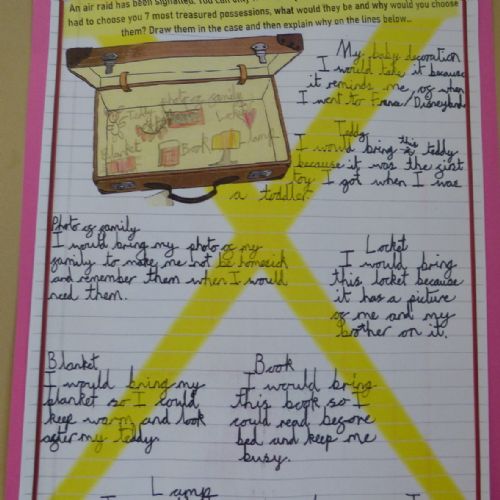 An air raid has been signalled. You can only
had to choose you 7 most treasured possessions, what would they be and why would you choose
them? Draw them in the case and then explain why on the lines below...
My baby decoration
I would take it because
it reminds me of when
I went to France/Disneyland
Teddy
I would bring this teddy
because it was the first
toy I got when I was
a toddler.
Teddy
photo of family
Locket
Blanket
Book
Lamp
Photo of family
I would bring my photo of my
family to make me not be homesick
and remember them when I would
need them.
Locket
I would bring
this locket because
it has a picture
of me and my
brother on it.
Blanket
I would bring my
blanket so I could
keep warm and look
after my teddy.
Book
I would bring
this book so I
could read before
bed and keep me
busy.
Lamp